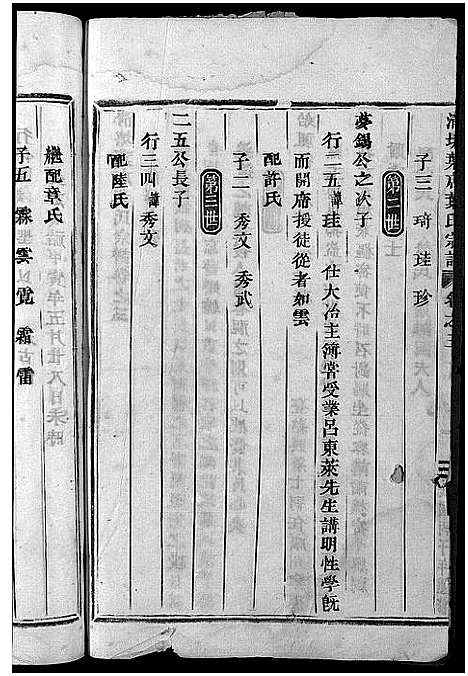 葉氏宗譜
子三 琦 珪 珍
第二世
夢錫公之次子
行二五諱珪 仕大冶主簿嘗受業呂東萊先生講明性學旣
而開齋授徒從者如雲
配許氏
子二 秀文 秀武
第三世
二五公長子
行三四諱秀文
配陸氏
繼配章氏
子五 霖 雲 霓 霜 雷